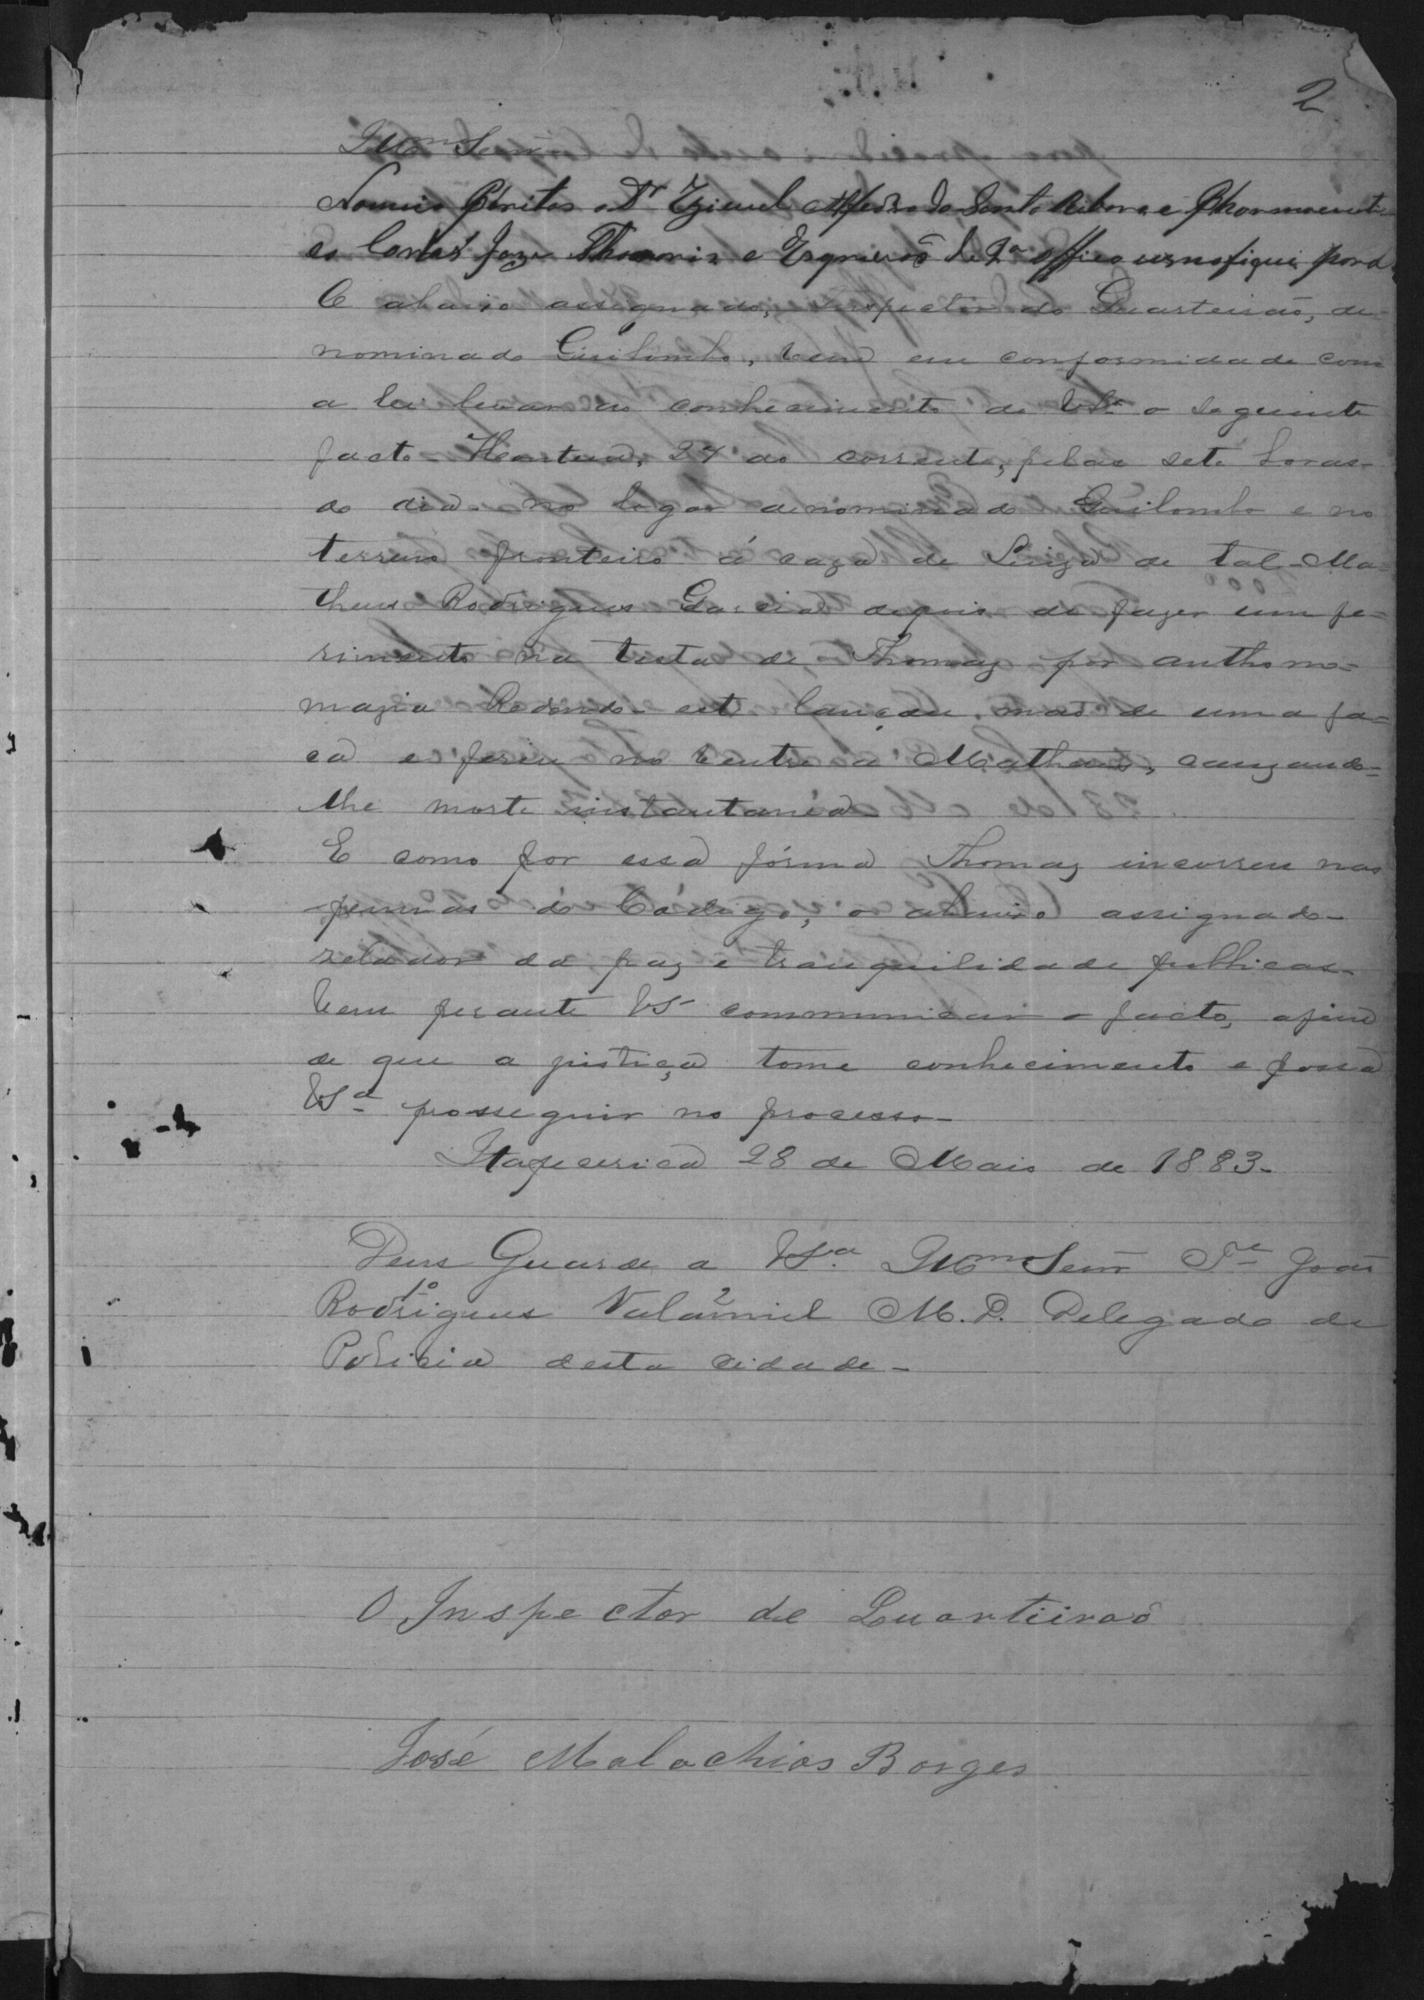 2
Illm.º Senr.
Nomeio Peritos o Dr Ezequiel Alfredo do Santo Ribeiro e Pharmaceuti-
co Carlos Joze e Escrivão do 2º officio
O abaixo assignado, inspector do Quarteirão, de-
nominado Quilombo, vem em conformidade com
a lei levar ao conhecimento de VSª o seguinte
facto - Hontem, 27 do corrente, pelas sete horas
do dia no logar denominado Quilombo e no
terreno fronteiro á caza de Luiza de tal - Ma-
theus Rodrigues Garcia depois de fazer um fe-
rimento na testa de Thomaz por anthono-
mazia Redondo - est lançou mão de uma fa-
ca e feriu no ventre a Matheus, cauzando-
lhe morte instantania
E como por essa fórma Thomaz incorreu nas
pennas do Código, o abaixo assignado -
zelador da paz e tranquilidade publicas -
vem perante VSª communicar o facto, afim
de que a justiça tome conhecimento e possa
VSª prosseguir no processo -
Itapecerica 28 de Maio de 1883 -
Deus Guarde a VSª. Illmº Senr João
1º 2
Rodrigues M. D. Delegado de
Policia desta cidade -
O Inspector de Quarteirão
José Malachias Borges